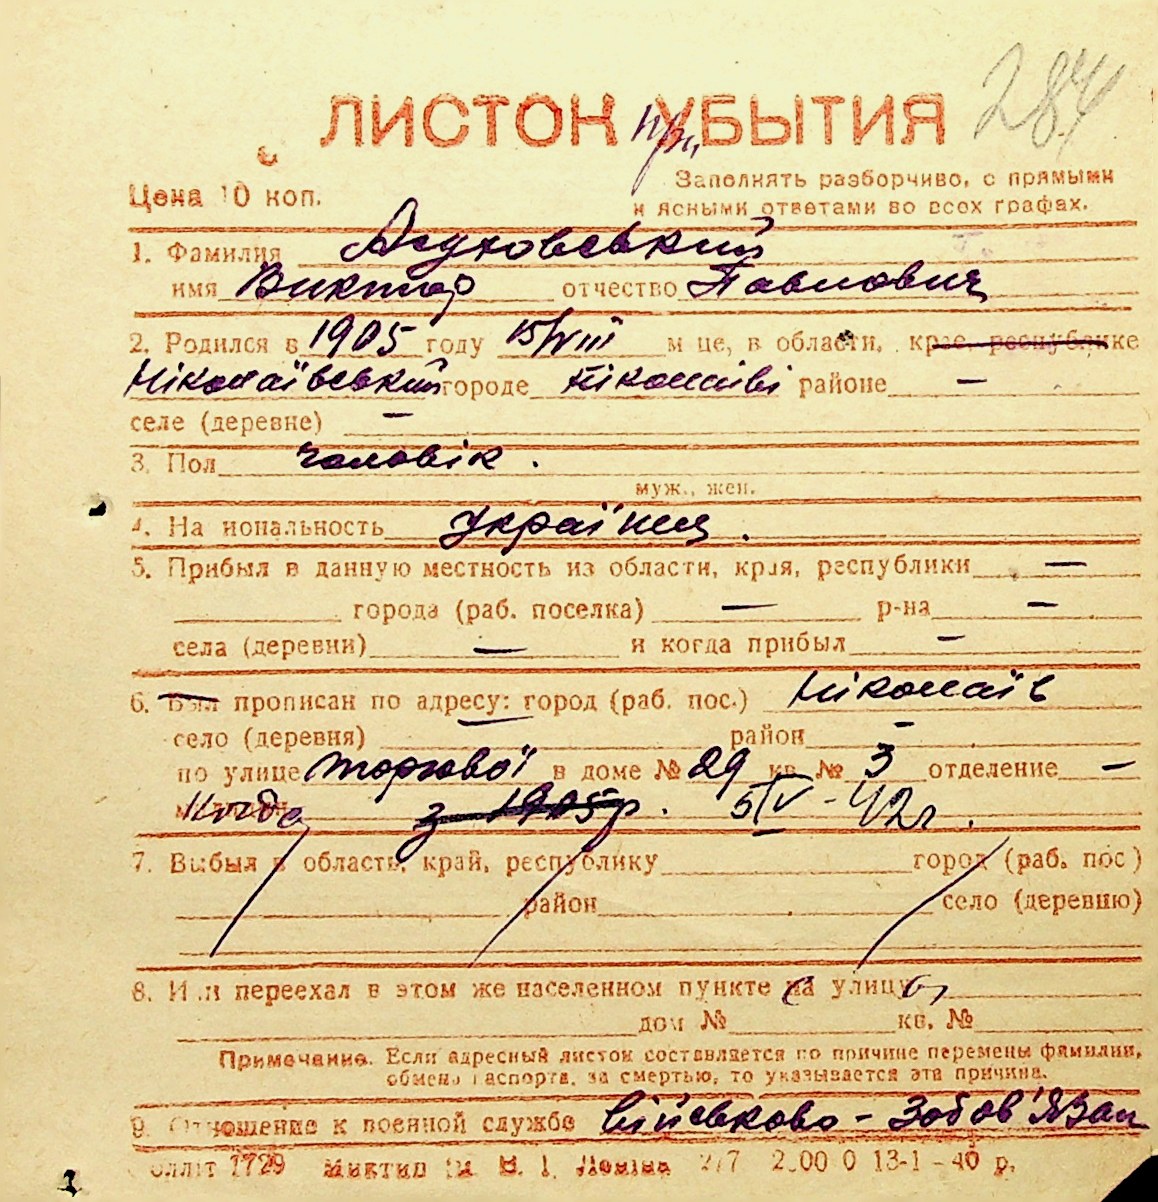 284
ЛИСТОК УБЫТИЯ
при
Цена 10 коп.
Заполнять разборчиво, с прямыми
и ясными ответами во всех графах.
1. Фамилия
имя Виктор отчество Павлович
2. Родился в 1905 году 15/VIII м це, в области, крае, республике
Ніколаївський городе Ніколаїві районе —
селе (деревне) —
3. Пол чоловік.
муж., жен.
4. На иональность українец.
5. Прибыл в данную местность из области, края, республики —
города (раб. поселка) — р-на —
села (деревни) — и когда прибыл —
6. Был прописан по адресу: город (раб. пос.) Ніколаїв
село (деревня) — район —
по улице Торгової в доме № 29 кв. № 3 отделение —
Когда з 1905 р. 5/IV - 42 г.
7. Выбыл в область, край, республику город (раб. пос)
район село (деревню)
8. И и переехал в этом же населенном пункте на улицу
дом № кв. №
Примечание. Если адресный листок составляется по причине перемены фамилии,
обмена паспорта, за смертью, то указывается эта причина.
9. Отношение к военной службе Війсь‌ково - Зобов'язан
облліт 1729 277 13-1-40 р.